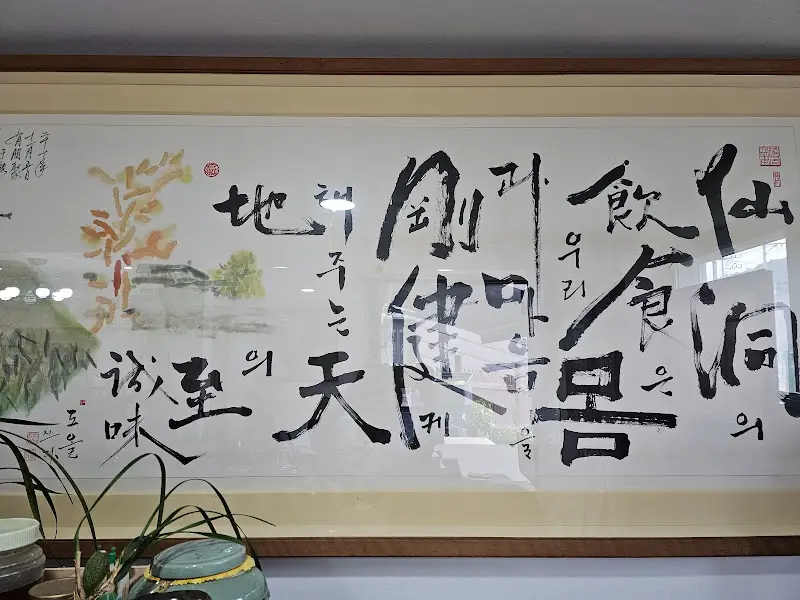 仙洞의
飮食은
우리몸
과마음을
剛健케
해주는天
地의
至
誠味
도올